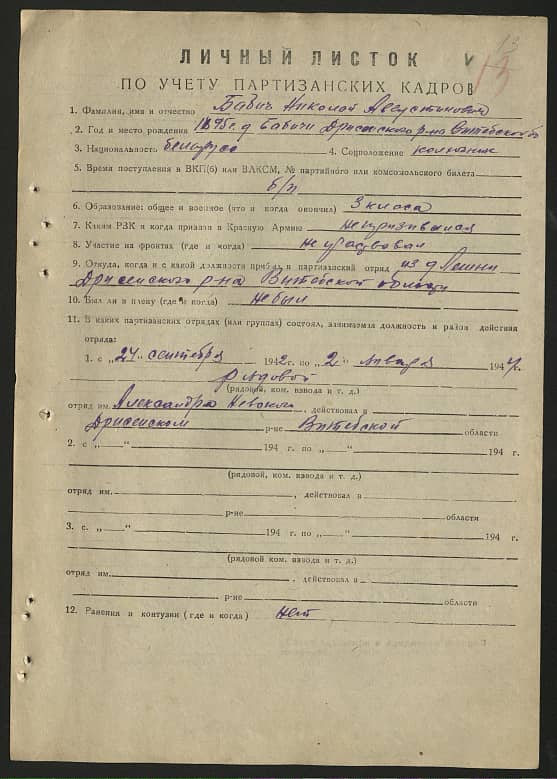 13
ЛИЧНЫЙ ЛИСТОК
ПО УЧЕТУ ПАРТИЗАНСКИХ КАДРОВ
1. Фамилия, имя и отчество Бабич Николай Августинович
2. Год и место рождения 1895 г. д Бабичи Дриссенского р-на Витебской об
3. Национальность белорус 4. Соцположение колхозник
5. Время поступления в ВКП(б) или ВЛКСМ, № партийного или комсомольского билета
б/п
6. Образование: общее и военное (что и когда окончил) 3 класа
7. Каким РВК и когда призван в Красную Армию непризывался
8. Участие на фронтах (где и когда) не уaствовал
9. Откуда, когда и с какой должности прибыл в партизанский отряд из д Ленин
Дриссенского р-на Витебской области
10. Был ли в плену (где и когда) не был
11. В каких партизанских отрядах (или группах) состоял, занимаемая должность и район действия
отряда:
1. с „24" сентября 1942 г. по „2" января 1944 г.
рядовой
(рядовой, ком. взвода и т. д.)
отряд им. Александра Невского, действовал в
Дриссенском р-не Витебской области
2. с „—" 194 г. по „—" 194 г.
(рядовой, ком. взвода и т. д.)
отряд им. , действовал в
р-не области
3. с. „—" 194 г. по „—" 194 г.
(рядовой, ком. взвода и т. д.)
отряд им. , действовал в
р-не области
12. Ранения и контузии (где и когда) нет